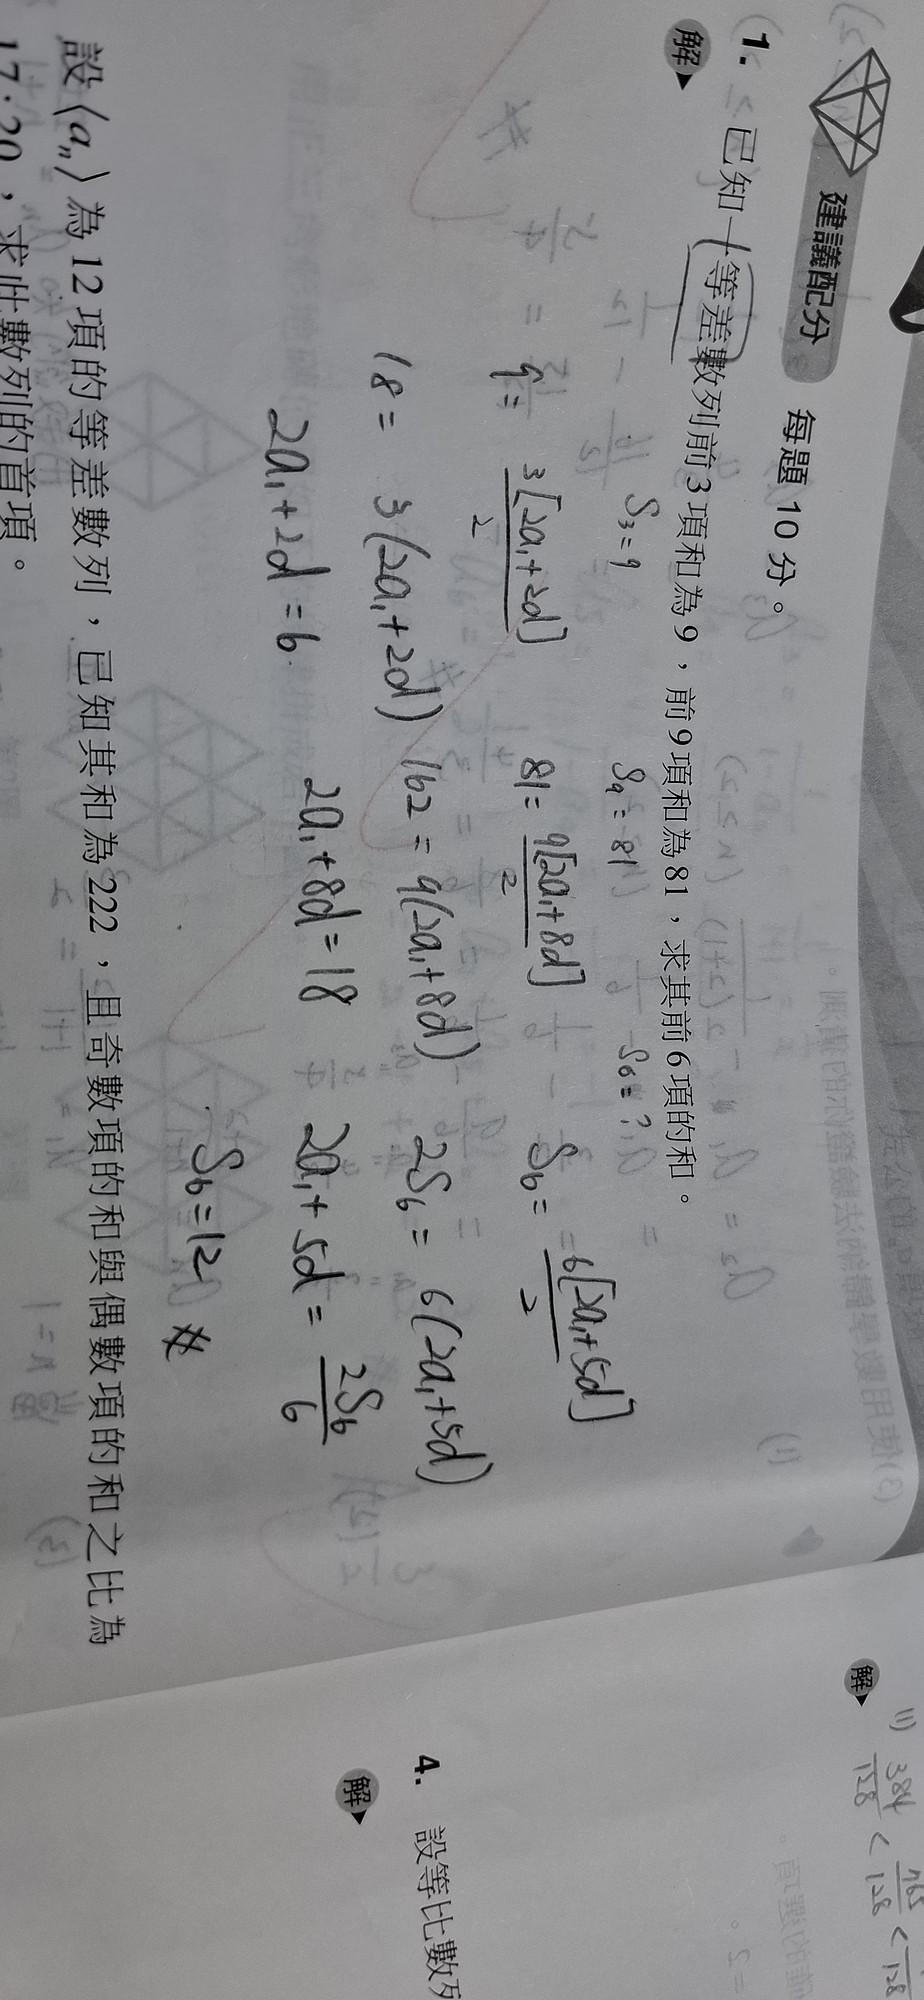 建議配分 每題 10 分。
1. 已知一等差數列前 3 項和為 9，前 9 項和為 81，求其前 6 項的和。
解 S₃=9 S₉=81 S₆=?
9= 3[2a₁+2d]/2 81= 9[2a₁+8d]/2 S₆= 6[2a₁+5d]/2
18= 3(2a₁+2d) 162=9(2a₁+8d) 2S₆= 6(2a₁+5d)
2a₁+2d=6 2a₁+8d=18 2a₁+5d= 2S₆/6
S₆=12 #
設⟨aₙ⟩為 12 項的等差數列，已知其和為 222，且奇數項的和與偶數項的和之比為
17：20，求此數列的首項。
解 (1) 384/128 <
4. 設等比數列
解